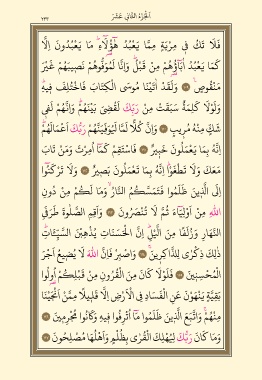 الجزء الثاني عشر
٢٣٣
فَلَا تَكُ فِي مِرْيَةٍ مِمَّا يَعْبُدُ هٰٓؤُ۬لَٓاءِۜ مَا يَعْبُدُونَ اِلَّا
كَمَا يَعْبُدُ اٰبَٓاؤُ۬هُمْ مِنْ قَبْلُۜ وَاِنَّا لَمُوَفُّوهُمْ نَص۪يبَهُمْ غَيْرَ
مَنْقُوصٍ۟ وَلَقَدْ اٰتَيْنَا مُوسَى الْكِتَابَ فَاخْتُلِفَ ف۪يهِۜ
وَلَوْلَا كَلِمَةٌ سَبَقَتْ مِنْ رَبِّكَ لَقُضِيَ بَيْنَهُمْۜ وَاِنَّهُمْ لَف۪ي
شَكٍّ مِنْهُ مُر۪يبٍ وَاِنَّ كُلًّا لَمَّا لَيُوَفِّيَنَّهُمْ رَبُّكَ اَعْمَالَهُمْۜ
اِنَّهُ بِمَا يَعْمَلُونَ خَب۪يرٌ فَاسْتَقِمْ كَمَٓا اُمِرْتَ وَمَنْ تَابَ
مَعَكَ وَلَا تَطْغَوْاۜ اِنَّهُ بِمَا تَعْمَلُونَ بَص۪يرٌ وَلَا تَرْكَنُٓوا
اِلَى الَّذ۪ينَ ظَلَمُوا فَتَمَسَّكُمُ النَّارُۙ وَمَا لَكُمْ مِنْ دُونِ
اللّٰهِ مِنْ اَوْلِيَٓاءَ ثُمَّ لَا تُنْصَرُونَ وَاَقِمِ الصَّلٰوةَ طَرَفَيِ
النَّهَارِ وَزُلَفًا مِنَ الَّيْلِۜ اِنَّ الْحَسَنَاتِ يُذْهِبْنَ السَّيِّـَٔاتِۜ
ذٰلِكَ ذِكْرٰى لِلذَّاكِر۪ينَ وَاصْبِرْ فَاِنَّ اللّٰهَ لَا يُض۪يعُ اَجْرَ
الْمُحْسِن۪ينَ فَلَوْلَا كَانَ مِنَ الْقُرُونِ مِنْ قَبْلِكُمْ اُو۬لُوا
بَقِيَّةٍ يَنْهَوْنَ عَنِ الْفَسَادِ فِي الْاَرْضِ اِلَّا قَل۪يلًا مِمَّنْ اَنْجَيْنَا
مِنْهُمْۚ وَاتَّبَعَ الَّذ۪ينَ ظَلَمُوا مَٓا اُتْرِفُوا ف۪يهِ وَكَانُوا مُجْرِم۪ينَ
وَمَا كَانَ رَبُّكَ لِيُهْلِكَ الْقُرٰى بِظُلْمٍ وَاَهْلُهَا مُصْلِحُونَ